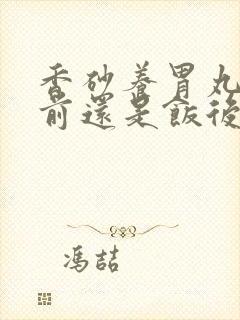 香砂養胃丸
前還是飯後
馮喆